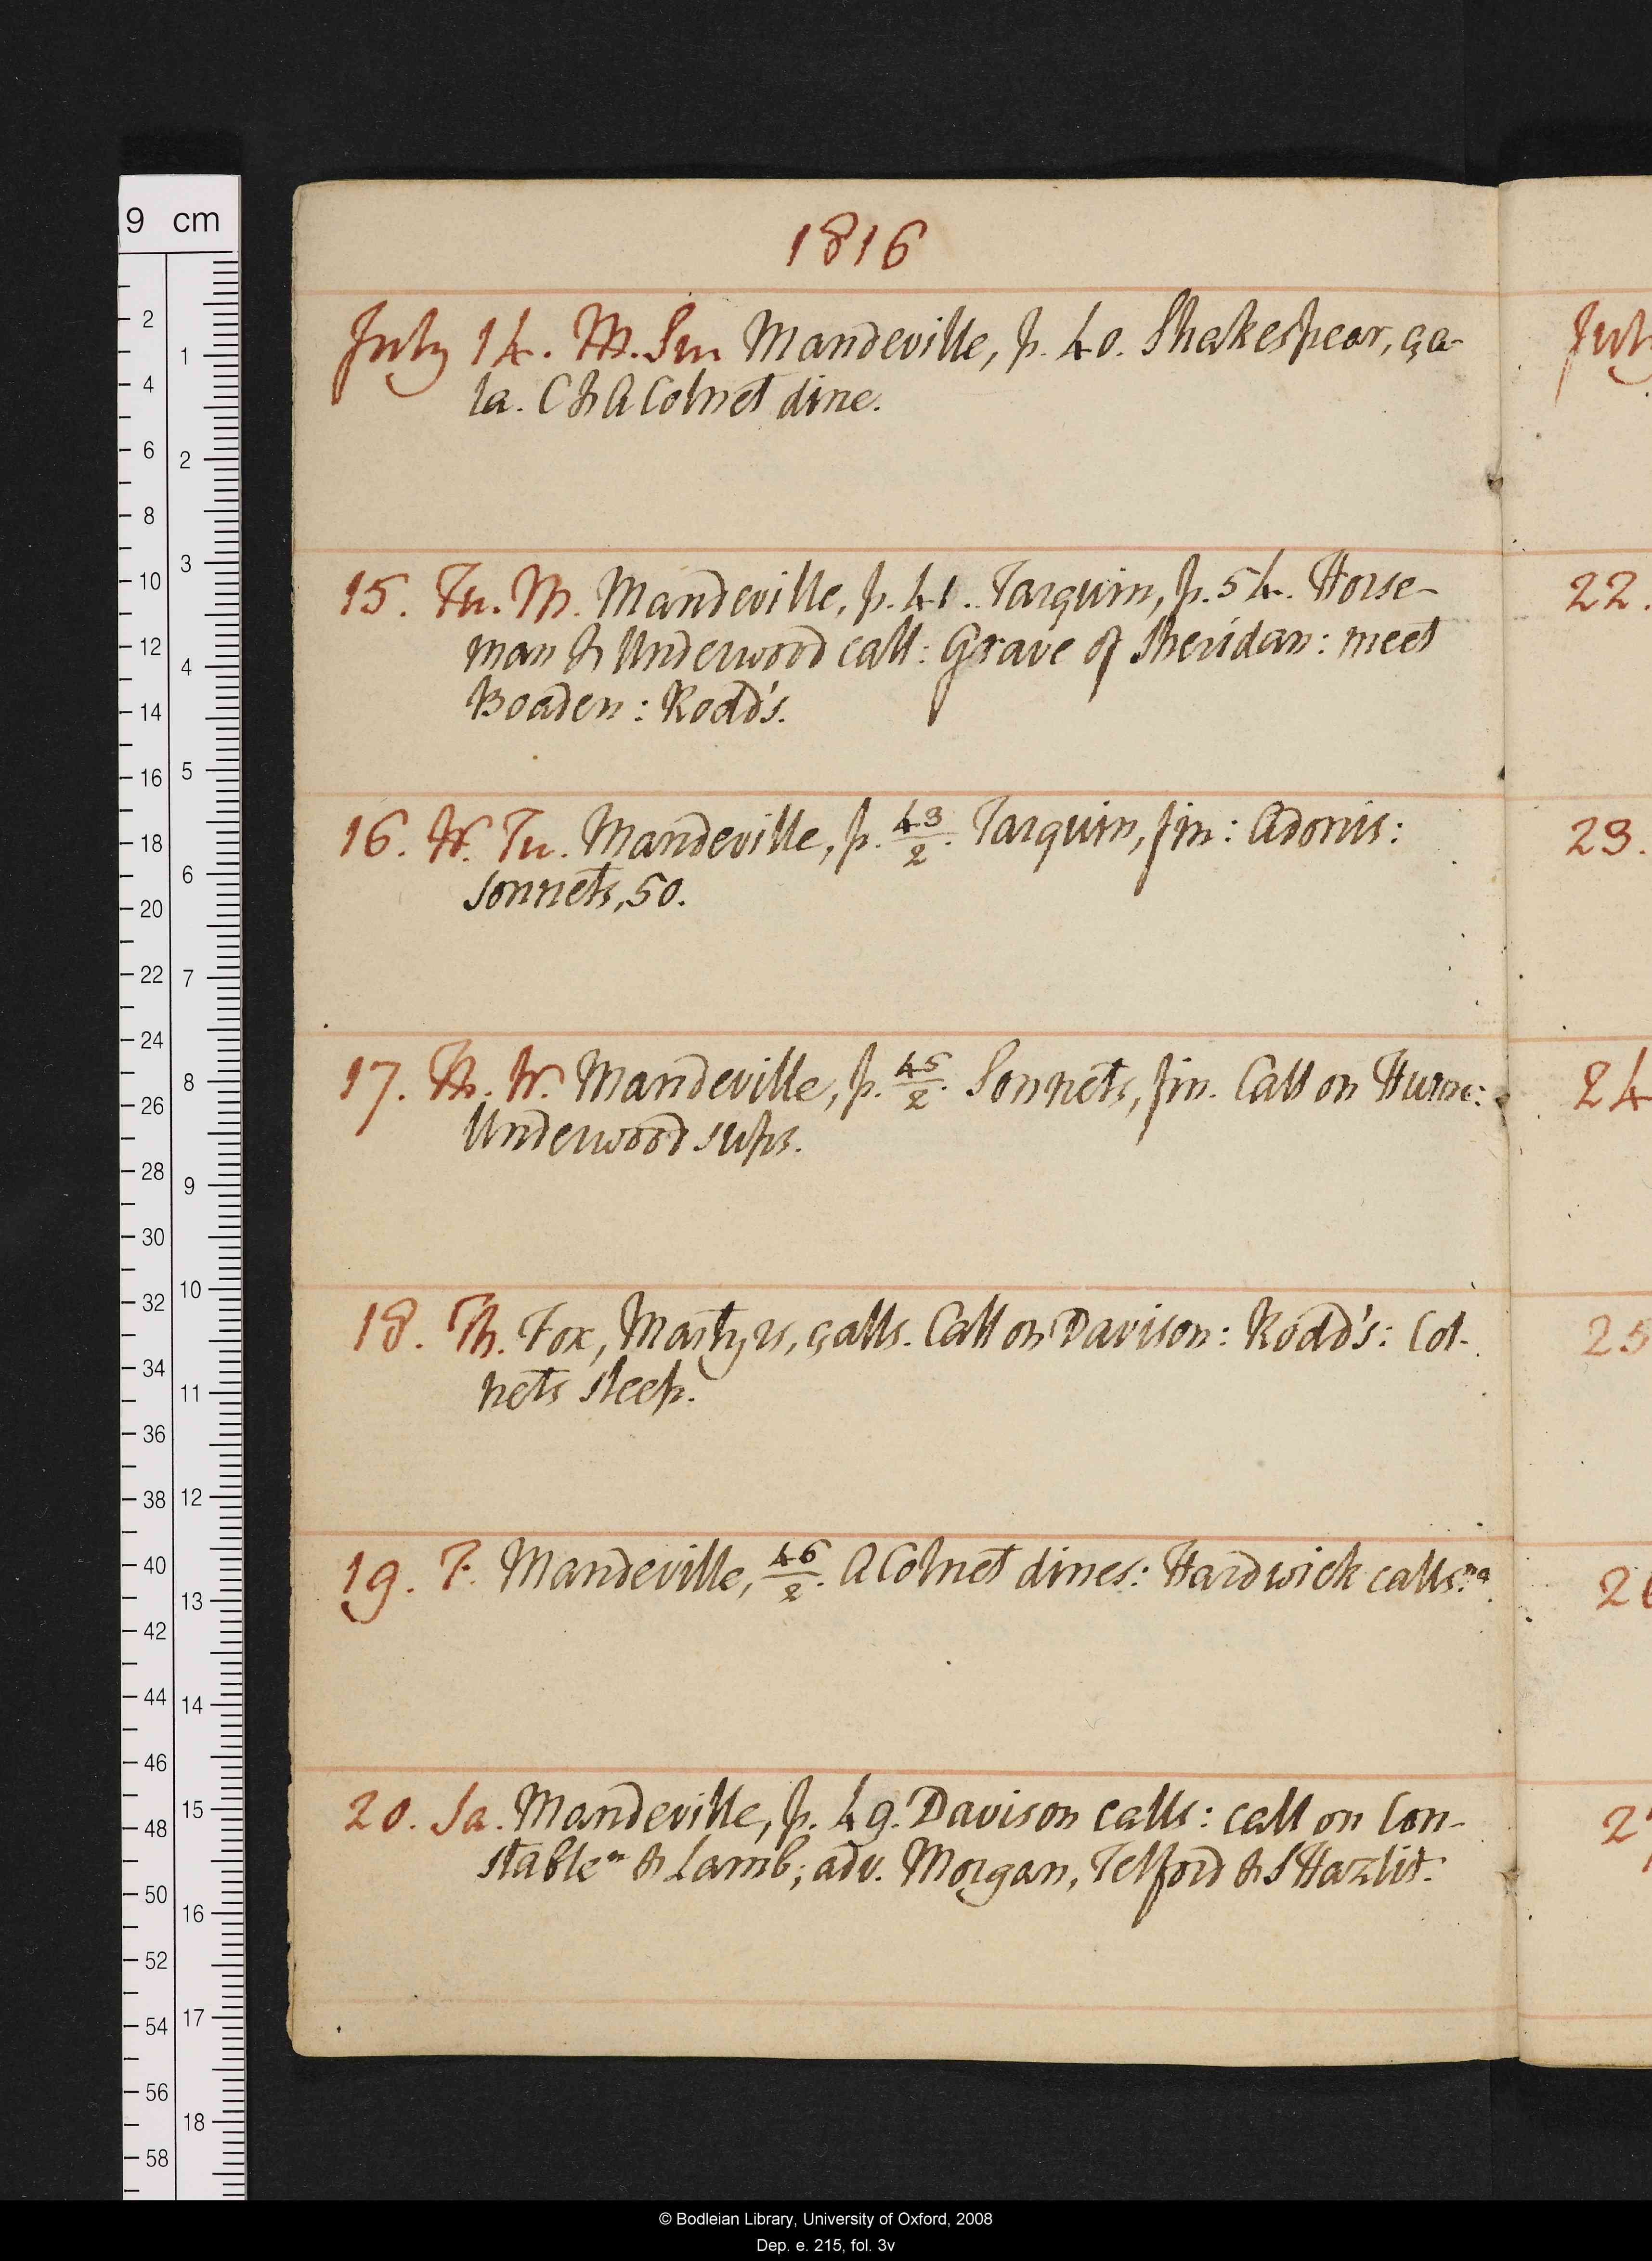 1816
July 14. M. Su. Mandeville, p. 40. Shakespear, ça-
la. C & A Colnet dine.
15. Tu. M. Mandeville, p. 41. Tarquin, p. 54. Horse-
man & Underwood call: Grave of Sheridan: meet
Boaden: Rodd's.
16. W. Tu. Mandeville, p. 43/2. Tarquin, fin: Adonis:
Sonnets, 50.
17. Th. W. Mandeville, p. 45/2. Sonnets, fin. Call on Hume:
Underwood sups.
18. Th. Fox, Martyrs, çalls. Call on Davison: Rodd's: Col-
nets sleep.
19. F. Mandeville, 46/2. A Colnet dines: Hardwick calls na.
20. Sa. Mandeville, p. 49. Davison calls: call on Con-
stable n & Lamb; adv. Morgan, Telford & S Hazlit.
July
22.
23.
24
25
2
2
9 cm
2
4
6
8
10
12
14
16
18
20
22
24
26
28
30
32
34
36
38
40
42
44
46
48
50
52
54
56
58
1
2
3
4
5
6
7
8
9
10
11
12
13
14
15
16
17
18
© Bodleian Library, University of Oxford, 2008
Dep. e. 215, fol. 3v